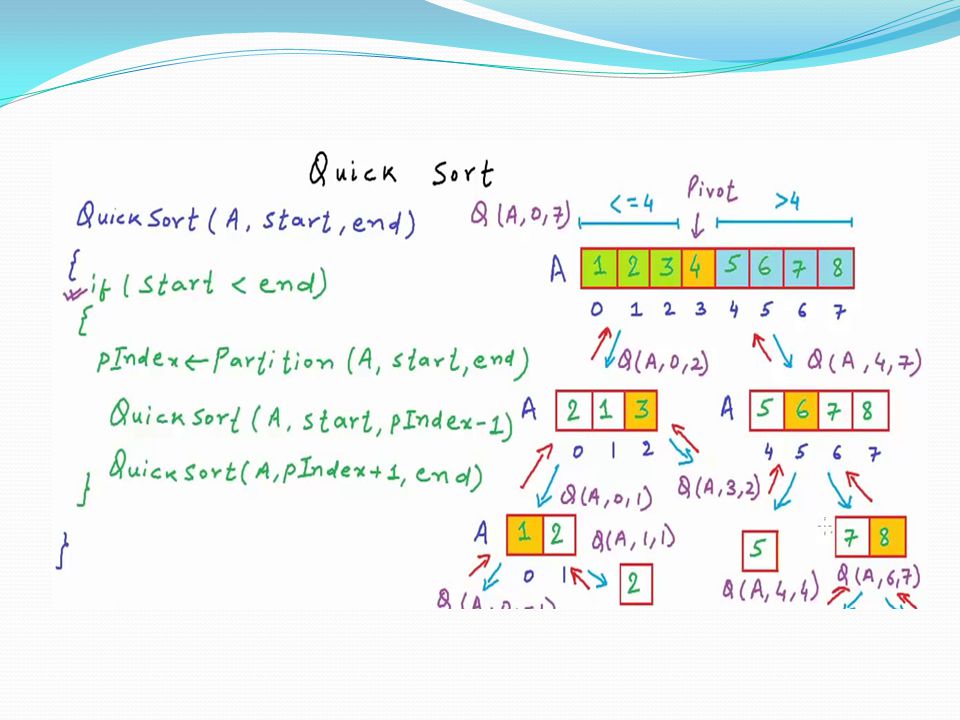 Quick Sort
QuickSort (A, start, end)
{
if (start < end)
{
pIndex ← Partition (A, start, end)
QuickSort (A, start, pIndex-1)
QuickSort(A, pIndex+1, end)
}
}
Q(A,0,7) <=4 Pivot >4
A 1 2 3 4 5 6 7 8
0 1 2 3 4 5 6 7
Q(A,0,2) Q(A,4,7)
A 2 1 3 A 5 6 7 8
0 1 2 4 5 6 7
Q(A,0,1) Q(A,3,2)
A 1 2 Q(A,1,1) 5 7 8
0 1 2 Q(A,4,4) Q(A,6,7)